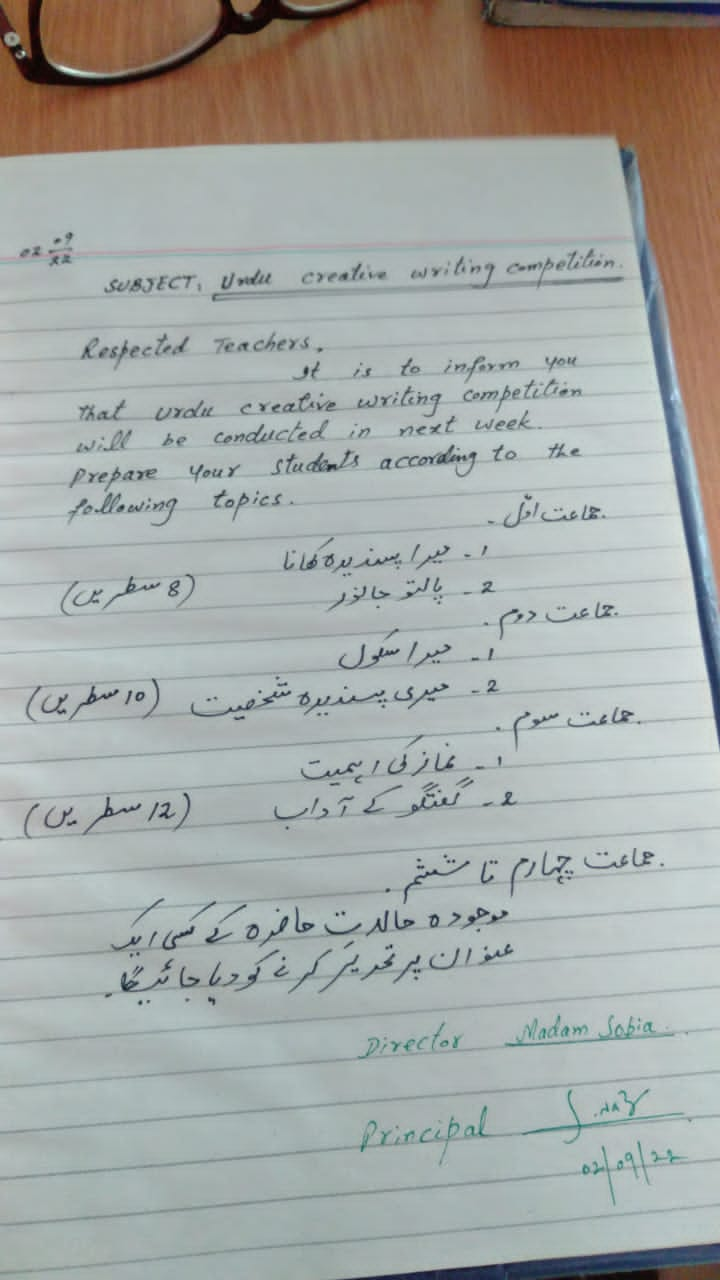 02 09/22
SUBJECT, Urdu creative writing competition.
Respected Teachers,
It is to inform you
that urdu creative writing competition
will be conducted in next week.
Prepare your students according to the
following topics.
جماعت اوّل ۔
1۔ میرا پسندیدہ کھانا
2۔ پالتو جانور (8 سطریں)
جماعت دوم ۔
1۔ میرا سکول
2۔ میری پسندیدہ شخصیت (10 سطریں)
جماعت سوم ۔
1۔ نماز کی اہمیت
2۔ گفتگو کے آداب (12 سطریں)
جماعت چہارم تا ششم ۔
موجودہ حالات حاضرہ کے کسی ایک
عنوان پر تحریر کرنے کو دیا جائیگا۔
Director Madam Sobia.
Principal
02/09/22